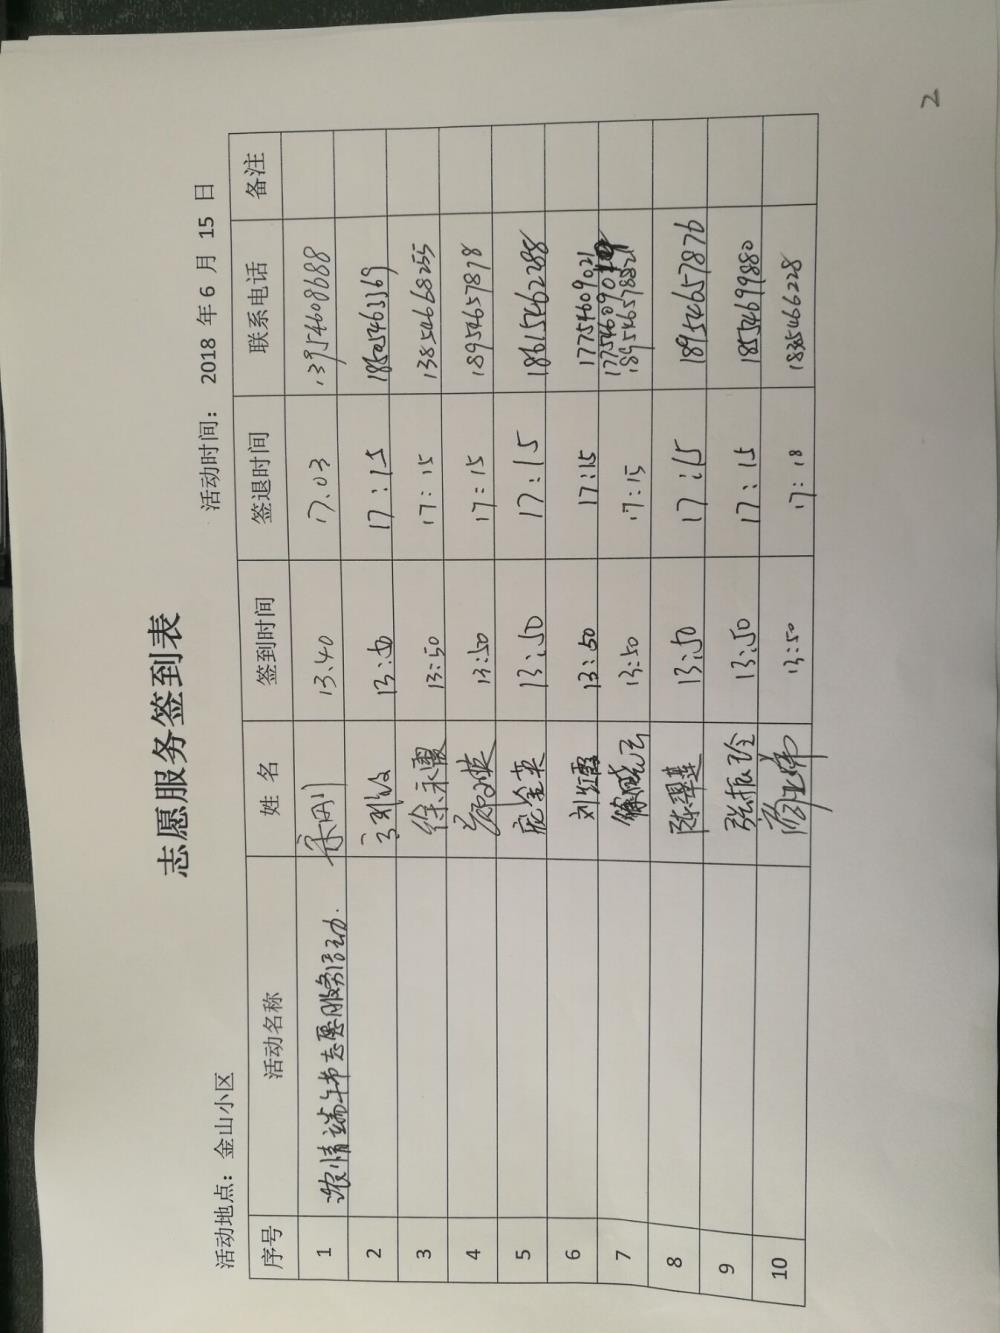 志愿服务签到表
活动地点：金山小区 活动时间： 2018 年 6 月 15 日
序号 活动名称 姓 名 签到时间 签退时间 联系电话 备注
1 浓情端午节志愿服务活动. 13:40 17.03 13954608688
2 13:50 17:15
3 徐永霞 13:50 17:15 13854668255
4 13:50 17:15 18954657878
5 庞金英 13:50 17:15 18615462288
6 刘红霞 13:50 17:15 17754609021
7 徐晓云 13:50 17:15
8 13:50 17:15 18954657876
9 张振玲 13:50 17:15 18554699880
10 13:50 17:18
2